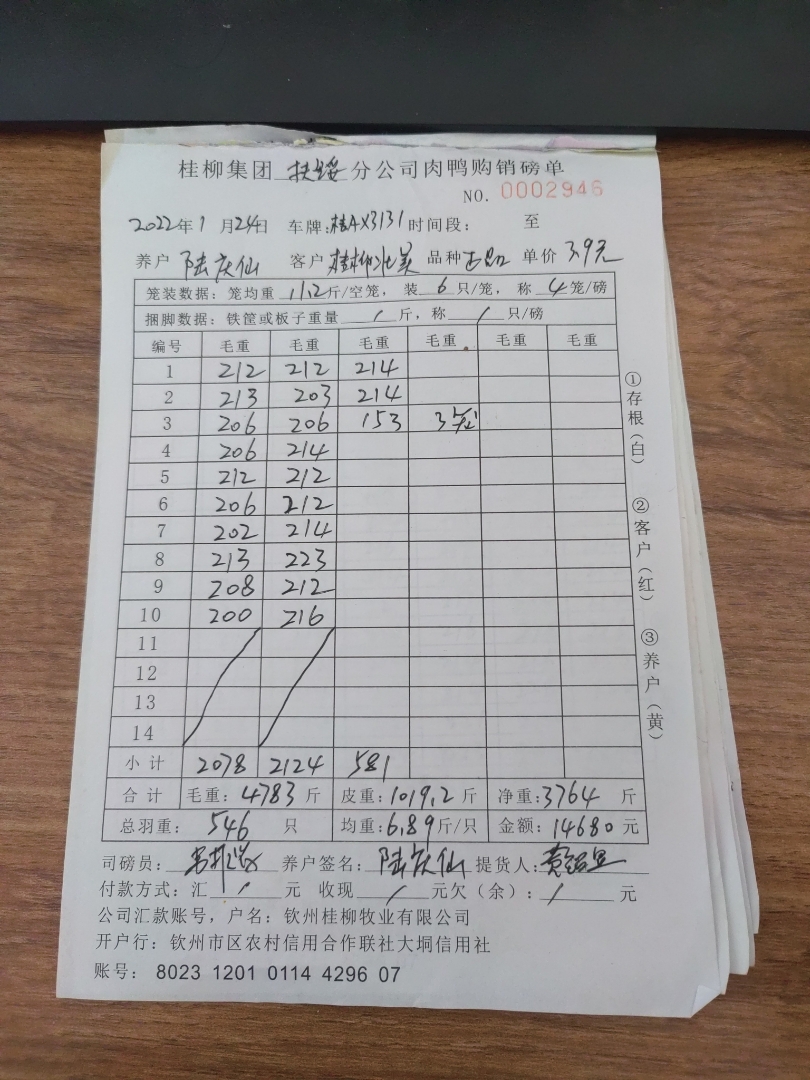 桂柳集团 扶绥 分公司肉鸭购销磅单
NO. 0002946
2022年1月24日 车牌:桂AX3131 时间段: 至
养户 陆庆仙 客户 桂柳北美 品种 正品 单价 3.9元
笼装数据: 笼均重 11.2 斤/空笼, 装 6 只/笼, 称 4 笼/磅
捆脚数据: 铁筐或板子重量 / 斤, 称 / 只/磅
编号 毛重 毛重 毛重 毛重 毛重 毛重
1 212 212 214
2 213 203 214
3 206 206 153 3笼
4 206 214
5 212 212
6 206 212
7 202 214
8 213 223
9 208 212
10 200 216
11
12
13
14
小计 2078 2124 581
合计 毛重: 4783 斤 皮重: 1019.2 斤 净重: 3764 斤
总羽重: 546 只 均重: 6.89 斤/只 金额: 14680 元
司磅员: 养户签名: 陆庆仙 提货人:
付款方式: 汇 / 元 收现 / 元欠(余): / 元
公司汇款账号, 户名: 钦州桂柳牧业有限公司
开户行: 钦州市区农村信用合作联社大垌信用社
账号: 8023 1201 0114 4296 07
①存根(白)
②客户(红)
③养户(黄)